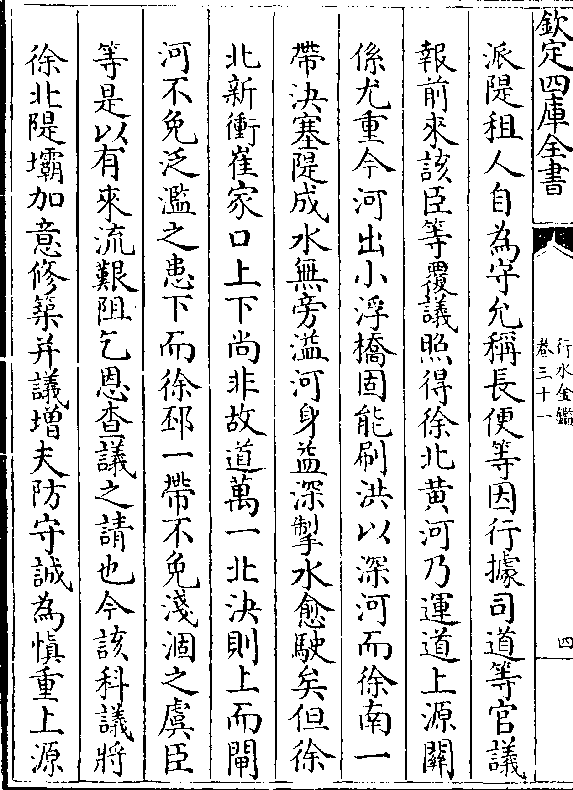 欽定四庫全書
行水金鑑
卷三十一
四
派隄租人自為守允稱長便等因行據司道等官議
報前來該臣等覆議照得徐北黃河乃運道上源關
係尤重今河出小浮橋固能刷洪以深河而徐南一
帶決塞隄成水無旁溢河身益深掣水愈駛矣但徐
北新衝崔家口上下尚非故道萬一北決則上而閘
河不免泛濫之患下而徐邳一帶不免淺涸之虞臣
等是以有來流艱阻乞恩查議之請也今該科議將
徐北隄壩加意修築并議增夫防守誠為慎重上源